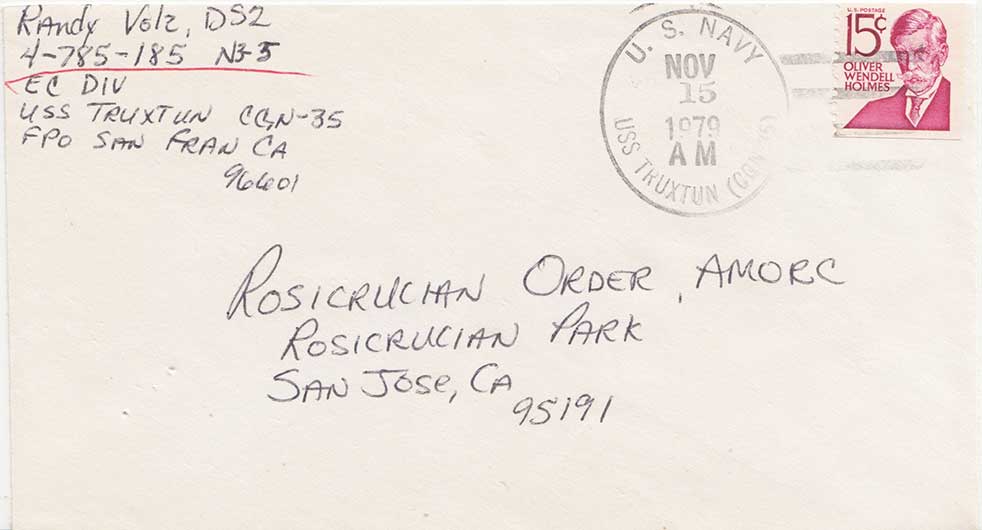 Randy Volz, DS2
4-785-185 N33
EC DIV
USS TRUXTUN CGN-35
FPO SAN FRAN CA
96601
U.S. NAVY
NOV
15
1979
AM
USS TRUXTUN (CGN-35)
U.S. POSTAGE
15¢
OLIVER
WENDELL
HOLMES
ROSICRUCIAN ORDER, AMORC
ROSICRUCIAN PARK
SAN JOSE, CA
95191